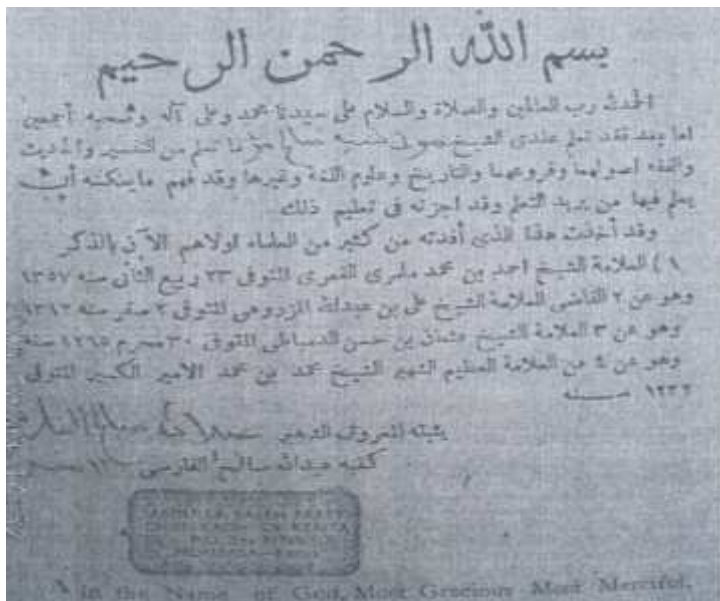 بسم الله الرحمن الرحيم
الحمد لله رب العالمين والصلاة والسلام على سيدنا محمد وعلى آله وصحبه أجمعين
اما بعد فقد تعلم عندى الشيخ ما تعلم من التفسير والحديث
والفقه اصولهما وفروعهما والتاريخ وعلوم اللغة وغيرها وقد فهم ما يمكنه أن
يعلم فيها من يريد التعلم وقد اجزته فى تعليم ذلك
وقد أخذت هذا الذى أفدته من كثير من العلماء اولاهم الآن بالذكر
١) العلامة الشيخ احمد بن محمد ملمرى القمرى المتوفى ٢٣ ربيع الثانى سنه ١٣٥٧
وهو عن ٢ القاضى العلامة الشيخ على بن عبدالله المزروعى المتوفى ٢ صفر سنه ١٣١٢
وهو عن ٣ العلامة الشيخ عثمان بن حسن الدمياطى المتوفى ٣٠ محرم ١٢٦٥ سنه
وهو عن ٤ عن العلامة العظيم الشهير الشيخ محمد بن محمد الامير الكبير المتوفى
١٢٣٢ سنه
يثبته المعروف الشهير
كتبه عبدالله صالح الفارسى
ABDULLA SALEH FARSY
CHIEF KADHI OF KENYA
MOMBASA
In the Name of God, Most Gracious Most Merciful,